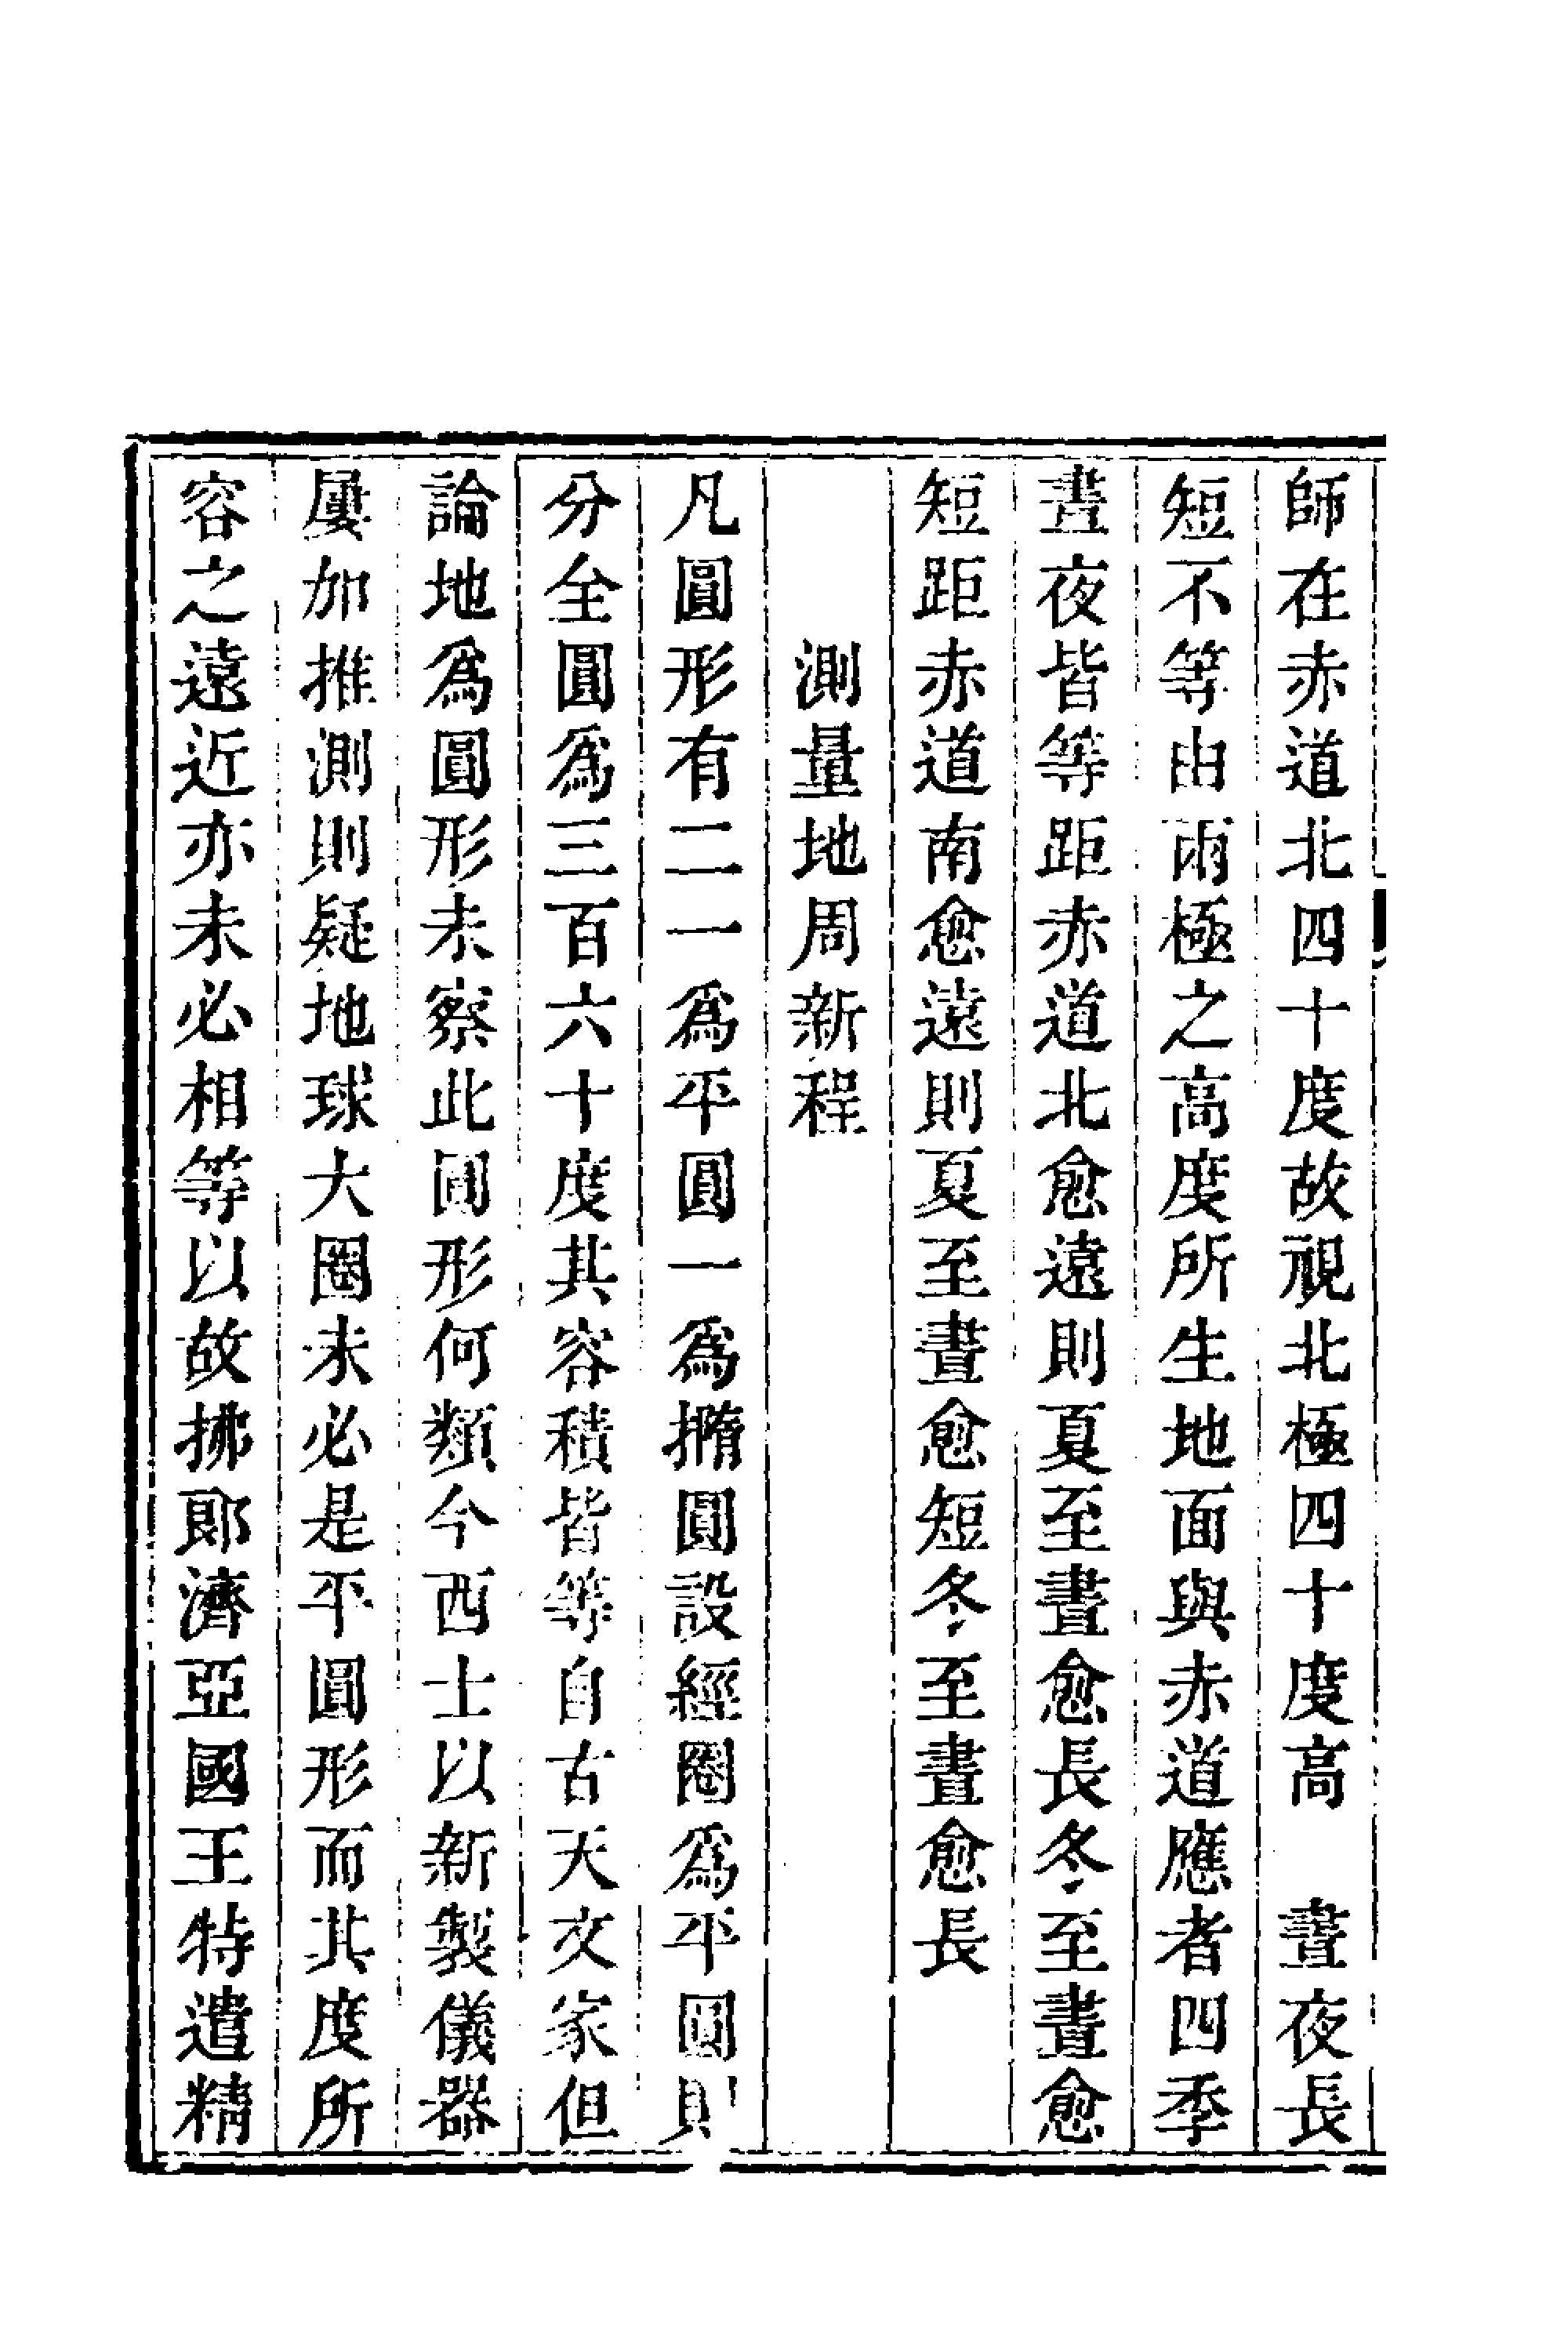 師在赤道北四十度故視北極四十度高　晝夜長
短不等由兩極之高度所生地面與赤道應者四季
晝夜皆等距赤道北愈遠則夏至晝愈長冬至晝愈
短距赤道南愈遠則夏至晝愈短冬至晝愈長
測量地周新程
凡圓形有二一爲平圓一爲橢圓設經圈爲平圓則
分全圓爲三百六十度其容積皆等自古天文家但
論地爲圓形未察此圓形何類今西士以新製儀器
屢加推測則疑地球大圈未必是平圓形而其度所
容之遠近亦未必相等以故拂郎濟亞國王特遣精